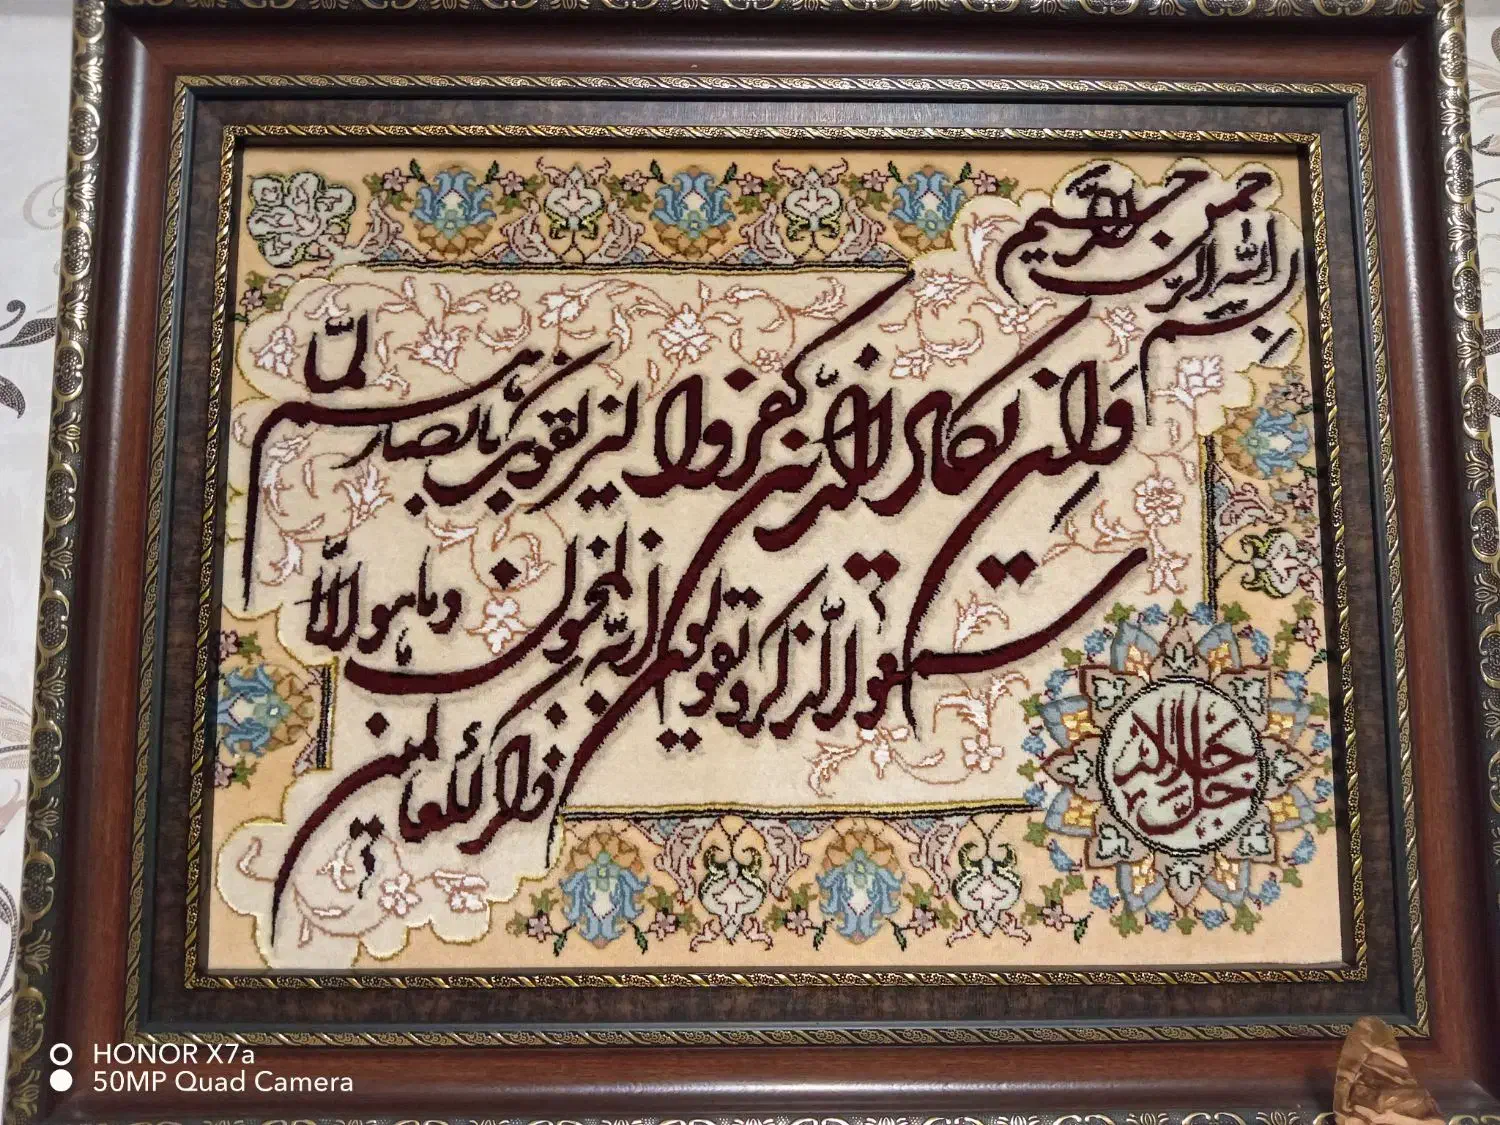 بسم الله الرحمن الرحیم
وَان یکاد الذین کفروا لیزلقونک بابصارهم لمّا
سمعوا الذکر و یقولون انه لمجنون و ما هو الّا
ذکر للعالمین
جل جلاله
HONOR X7a
50MP Quad Camera